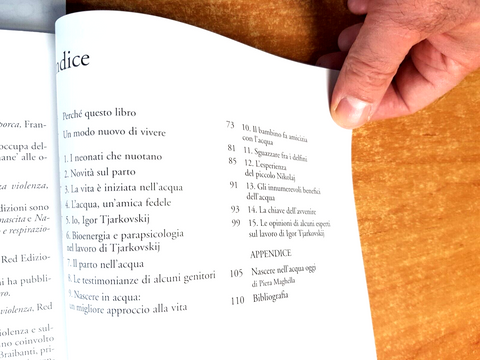 orca. Fran-
occupa del-
ane' alle o-
za violenza,
dizioni sono
nascita e Na-
o e respirazio-
Red Edizio-
ni ha pubbli-
ro.
violenza. Red
violenza e sul-
no coinvolto
Braibanti, pri-
ndice
Perché questo libro
Un modo nuovo di vivere
1. I neonati che nuotano
2. Novità sul parto
3. La vita è iniziata nell'acqua
4. L'acqua, un'amica fedele
5. Io, Igor Tjarkovskij
6. Bioenergia e parapsicologia
nel lavoro di Tjarkovskij
7. Il parto nell'acqua
8. Le testimonianze di alcuni genitori
9. Nascere in acqua:
un migliore approccio alla vita
73 10. Il bambino fa amicizia
con l'acqua
81 11. Sguazzare fra i delfini
85 12. L'esperienza
del piccolo Nikolaj
91 13. Gli innumerevoli benefici
dell'acqua
93 14. La chiave dell'avvenire
99 15. Le opinioni di alcuni esperti
sul lavoro di Igor Tjarkovskij
APPENDICE
105 Nascere nell'acqua oggi
di Piera Maghella
110 Bibliografia